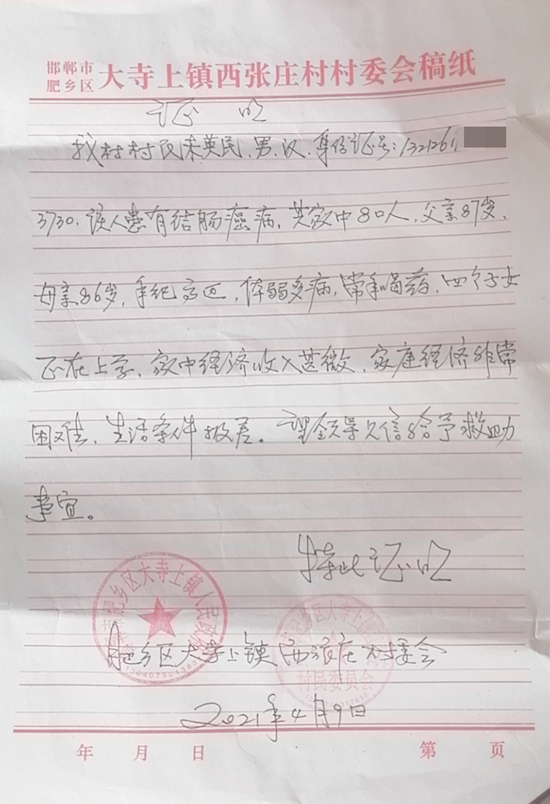 邯郸市
肥乡区 大寺上镇西张庄村村委会稿纸
证明
我村村民朱英民,男,汉,身份证号:132126
3730,该人患有结肠癌病,其家中8口人,父亲87岁,
母亲86岁,年纪高迈,体弱多病,常年喝药,四个子女
正在上学,家中经济收入甚微,家庭经济非常
困难,生活条件极差。望领导久信给予救助
事宜。
特此证明
肥乡区大寺上镇人民政府
肥乡区大寺上镇西张庄村委会
村民委员会
2021年4月9日
年 月 日 第 页